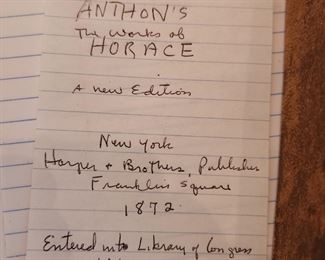 ANTHON'S
The Works of
HORACE
A new Edition
New York
Harper & Brothers, Publisher
Franklin Square
1872
Entered into Library of Congress